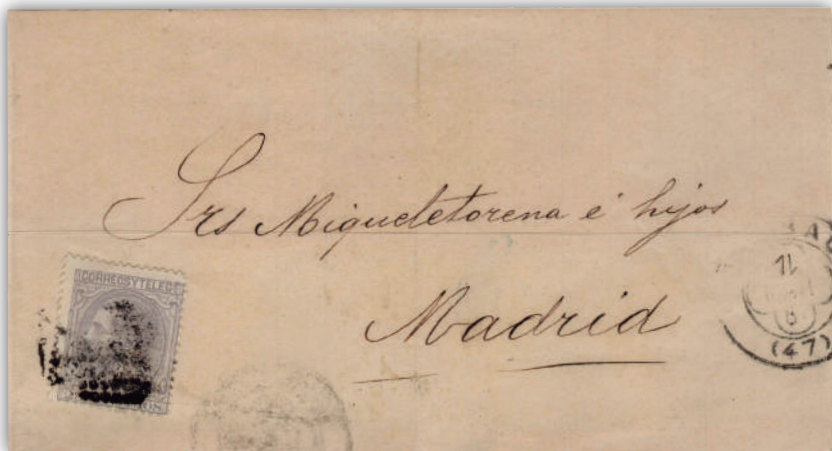 Srs Migueletorena é hijos
Madrid
CORREOS Y TELEG
(47)